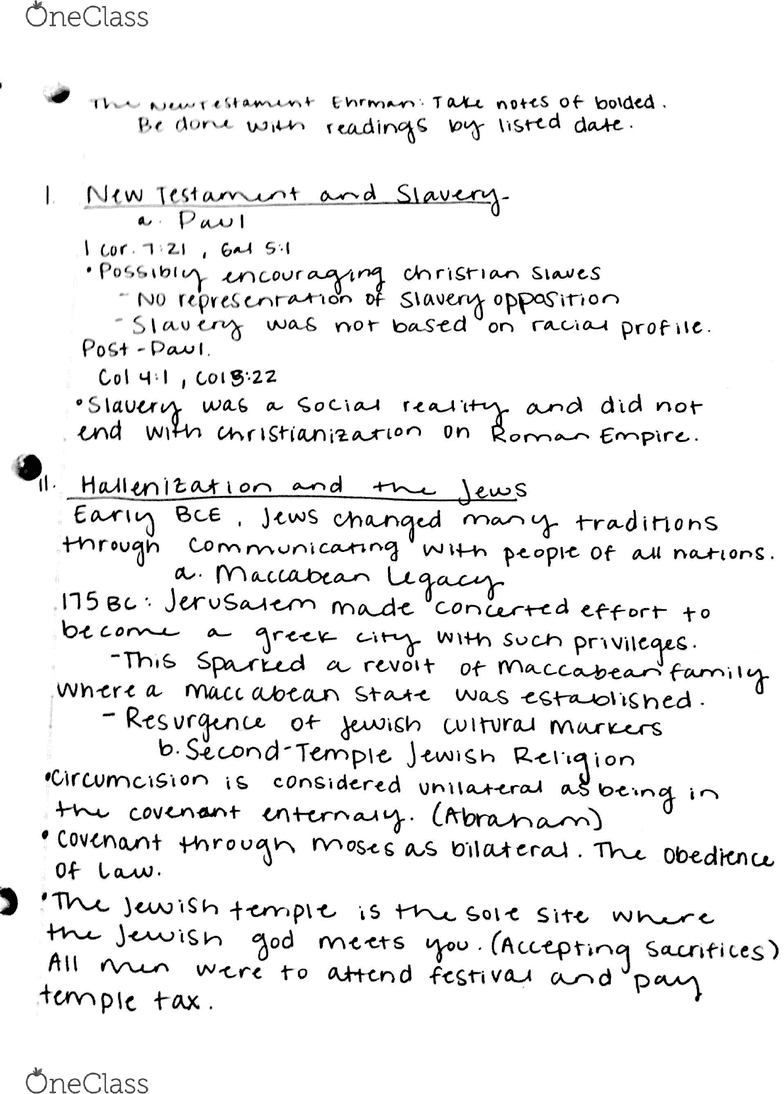 OneClass
The New Testament Ehrman: Take notes of bolded.
Be done with readings by listed date.
I. New Testament and Slavery-
a. Paul
1 Cor. 7:21, Gal 5:1
• Possibly encouraging christian slaves
- No representation of slavery opposition
- Slavery was not based on racial profile.
Post-Paul.
Col 4:1, Col 3:22
• Slavery was a social reality and did not
end with christianization on Roman Empire.
II. Hallenization and the Jews
Early BCE, Jews changed many traditions
through communicating with people of all nations.
a. Maccabean Legacy
175 BC: Jerusalem made concerted effort to
become a greek city with such privileges.
- This sparked a revolt of maccabean family
where a maccabean state was established.
- Resurgence of Jewish cultural markers
b. Second-Temple Jewish Religion
• Circumcision is considered unilateral as being in
the covenant enternaly. (Abraham)
• Covenant through moses as bilateral. The obedience
of law.
• The Jewish temple is the sole site where
the Jewish god meets you. (Accepting sacrifices)
All men were to attend festival and pay
temple tax.
OneClass